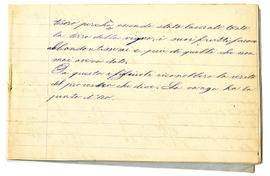 tesoro perchè, essendo stata lavorata tutta
la terra della vigna, i suoi frutti furono
abbondantissimi e più di quelli che non
mai aveva dato.
Da questo i figliuoli riconobbero la verità
del proverbio che dice: La vanga ha la
punta d'oro.